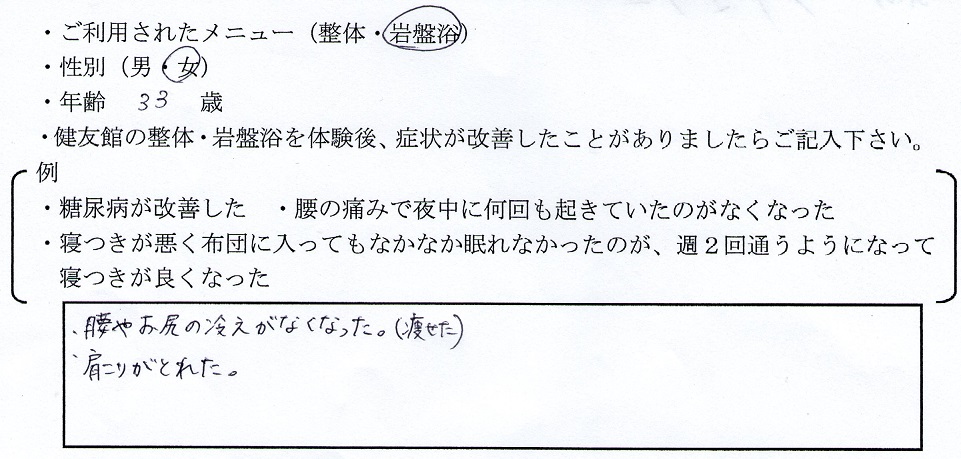 ・ご利用されたメニュー（整体・岩盤浴）
・性別（男・女）
・年齢 33 歳
・健友館の整体・岩盤浴を体験後、症状が改善したことがありましたらご記入下さい。
例
・糖尿病が改善した ・腰の痛みで夜中に何回も起きていたのがなくなった
・寝つきが悪く布団に入ってもなかなか眠れなかったのが、週２回通うようになって
寝つきが良くなった
・腰やお尻の冷えがなくなった。(痩せた)
・肩こりがとれた。